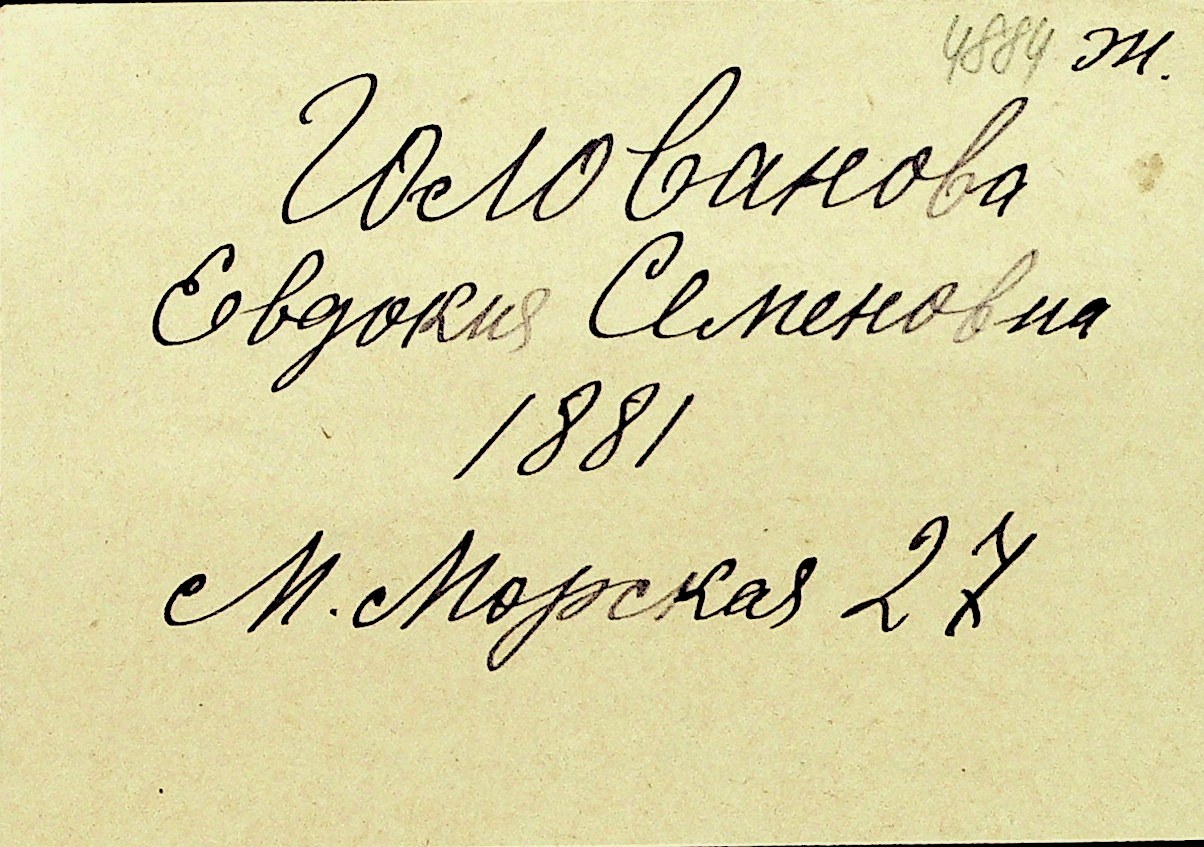 4884 ж.
Голованова
Евдокия Семеновна
1881
М. Морская 27